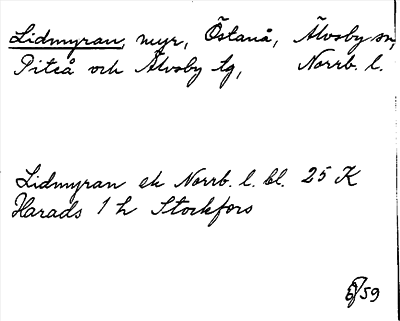 Lidmyran, myr, Östanå, Älvsby sn,
Piteå och Älvsby tg, Norrb. l.
Lidmyran ek Norrb. l. bl. 25 K
Harads 1 h Storkfors
59